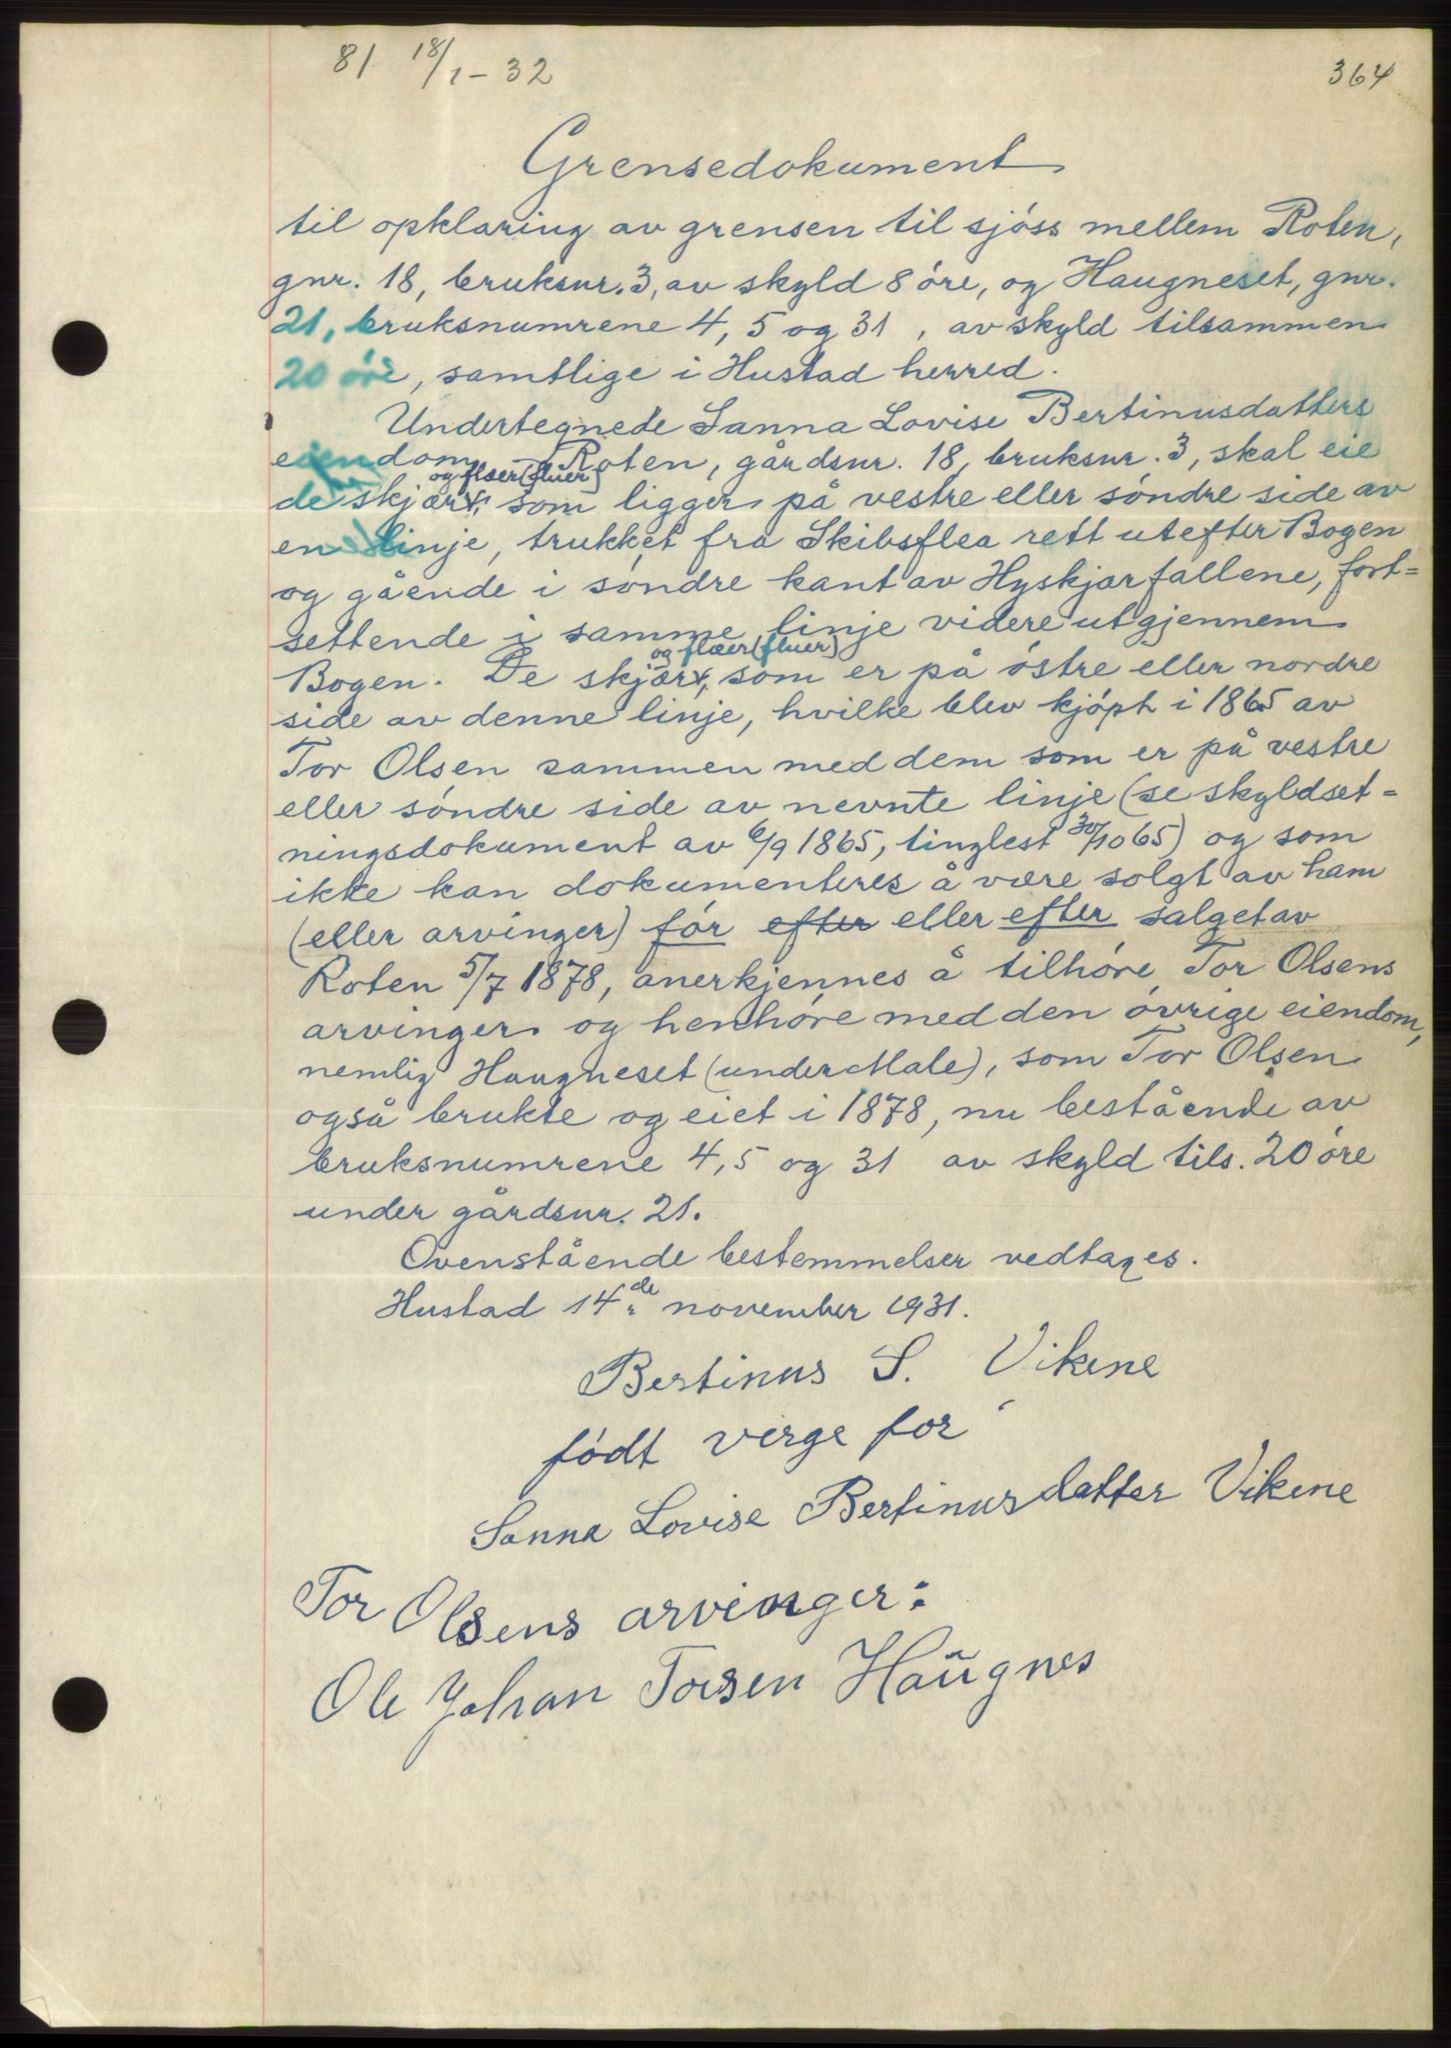 81 18/1 - 32
364
Grensedokument
til opklaring av grensen til sjöss mellem Roten,
gnr. 18, bruksnr. 3, av skyld 8 öre, og Haugneset, gnr.
21, bruksnumrene 4, 5 og 31, av skyld tilsammen
20 öre, samtlige i Hustad herred.
Undertegnede Sanna Lovise Bertinusdatters
eiendom Roten, gårdsnr. 18, bruksnr. 3, skal eie
og flæer (fluer)
de skjær, som ligger på vestre eller söndre side av
en linje, trukket fra Skibsflea rett utefter Bogen
og gående i söndre kant av Hyskjærfallene, fort=
settende i samme linje videre utgjennem
og flæer (fluer)
Bogen. De skjær, som er på östre eller nordre
side av denne linje, hvilke blev kjöpt i 1865 av
Tor Olsen sammen med dem som er på vestre
eller söndre side av nevnte linje (se skyldset=
ningsdokument av 6/9 1865, tinglest 30/10 65) og som
ikke kan dokumenteres å være solgt av ham
(eller arvinger) för efter eller efter salget av
Roten 5/7 1878, anerkjennes å tilhöre Tor Olsens
arvinger og henhöre med den övrige eiendom,
nemlig Haugneset (under Male), som Tor Olsen
også brukte og eiet i 1878, nu bestående av
bruksnumrene 4, 5 og 31 av skyld tils. 20 öre
under gårdsnr. 21.
Ovenstående bestemmelser vedtages.
Hustad 14de november 1931.
Bertinus S. Vikene
födt verge for
Sanna Lovise Bertinusdatter Vikene
Tor Olsens arvinger:
Ole Johan Torsen Haugnes